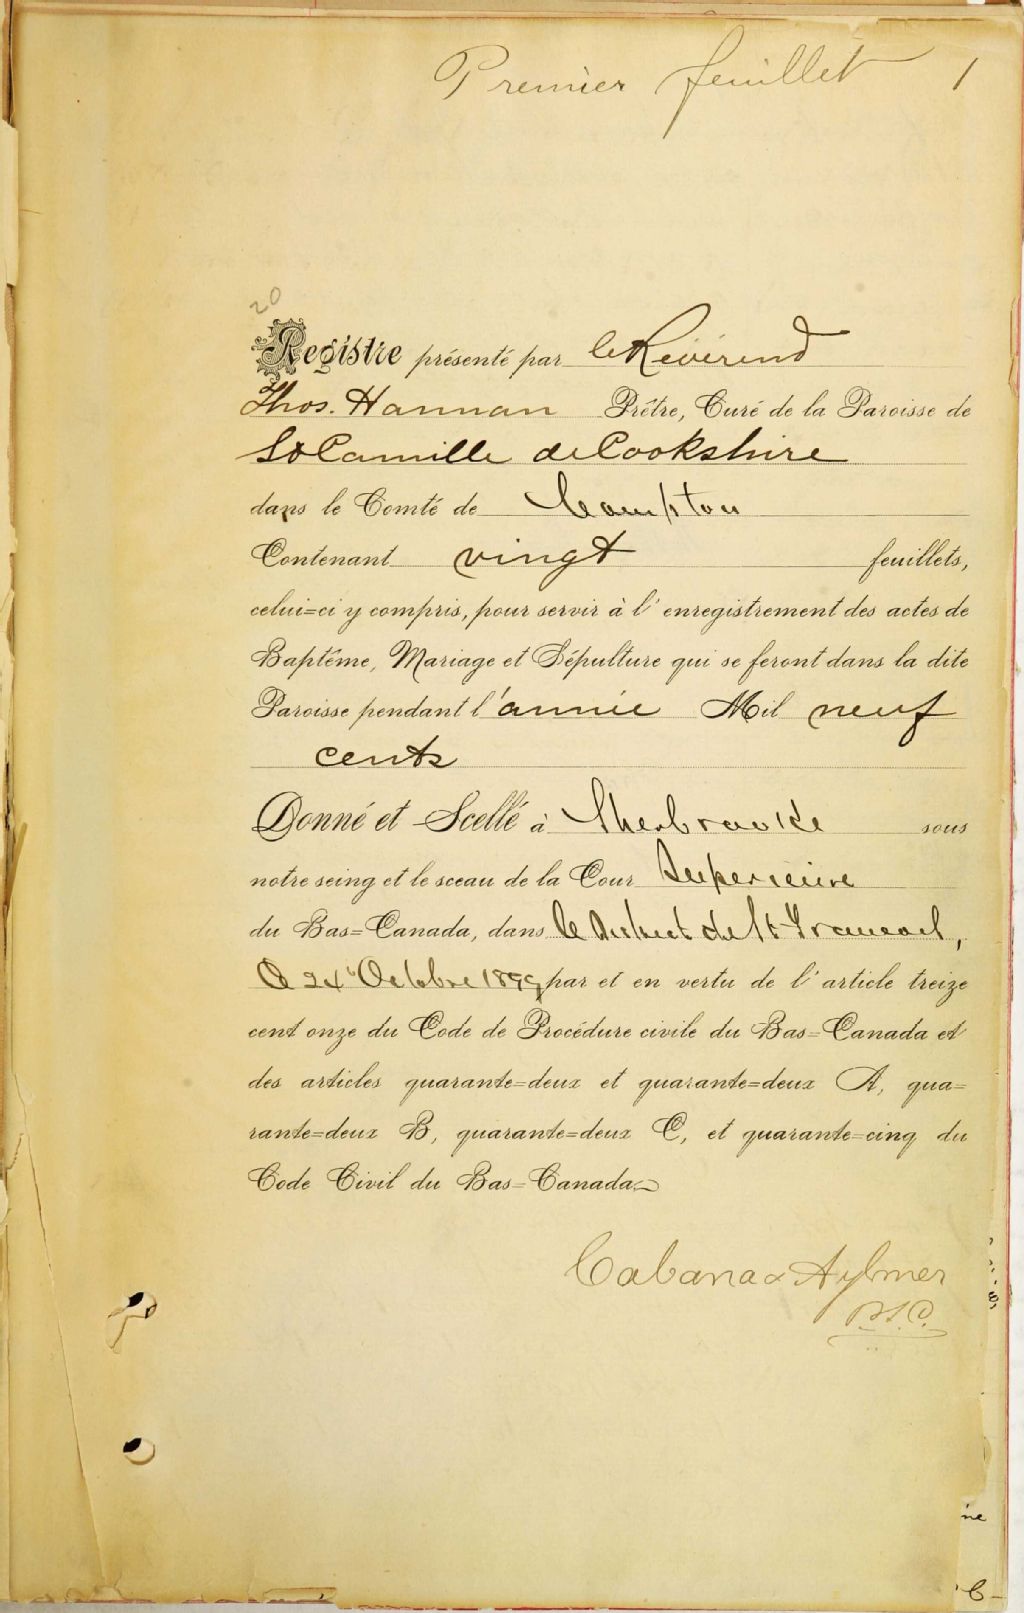 Premier feuillet 1
20
Registre présenté par le Révérend
Thos. Hannan Prêtre, Curé de la Paroisse de
St Camille de Cookshire
dans le Comté de Compton
Contenant vingt feuillets,
celui=ci y compris, pour servir à l'enregistrement des actes de
Baptême, Mariage et Sépulture qui se feront dans la dite
Paroisse pendant l'année Mil neuf
cents
Donné et Scellé à Sherbrooke sous
notre seing et le sceau de la Cour Superieure
du Bas=Canada, dans le District de St Francois,
Ce 24e Octobre 1899 par et en vertu de l'article treize
cent onze du Code de Procédure civile du Bas=Canada et
des articles quarante=deux et quarante=deux A, qua=
rante=deux B, quarante=deux C, et quarante=cinq du
Code Civil du Bas=Canada.
Cabana & Aylmer
P.S.C.
ne